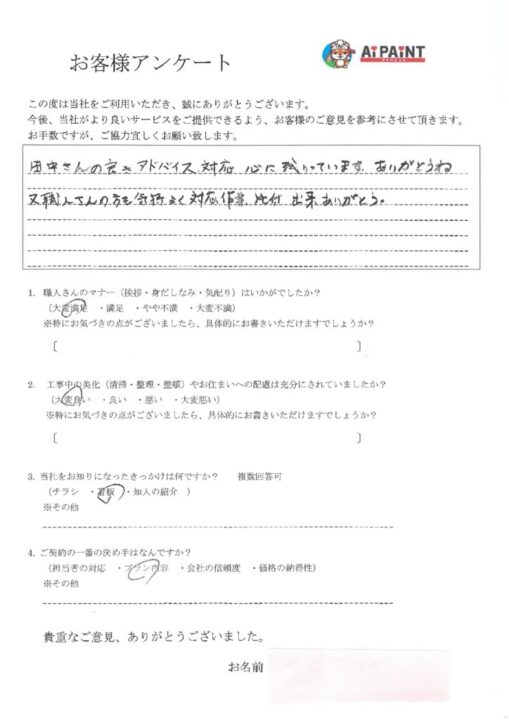 お客様アンケート
AiPAiNT
この度は当社をご利用いただき、誠にありがとうございます。
今後、当社がより良いサービスをご提供できるよう、お客様のご意見を参考にさせて頂きます。
お手数ですが、ご協力宜しくお願い致します。
田中さんの良きアドバイス 対応 心に残っています ありがとうね
又職人さんの方も気持よく対応作業 出来ありがとう。
1. 職人さんのマナー（挨拶・身だしなみ・気配り）はいかがでしたか？
（大変満足 ・満足 ・やや不満 ・大変不満）
※特にお気づきの点がございましたら、具体的にお書きいただけますでしょうか？
〔 〕
2. 工事中の美化（清掃・整理・整頓）やお住まいへの配慮は充分にされていましたか？
（大変良い ・良い ・悪い ・大変悪い）
※特にお気づきの点がございましたら、具体的にお書きいただけますでしょうか？
〔 〕
3. 当社をお知りになったきっかけは何ですか？ 複数回答可
（チラシ ・看板 ・知人の紹介 ）
※その他
4. ご契約の一番の決め手はなんですか？
（担当者の対応 ・プラン内容 ・会社の信頼度 ・価格の納得性）
※その他
貴重なご意見、ありがとうございました。
お名前